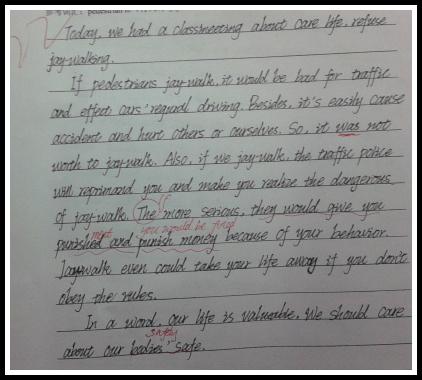 Today, we had a classmeeting about care life, refuse
jay-walking.
If pedestrians jay-walk, it would be bad for traffic
and effect cars' regural driving. Besides, it's easily cause
accident and hurt others or ourselves. So, it was not
worth to jay-walk. Also, if we jay-walk, the traffic police
will reprimand you and make you realize the dangerous
of jay-walk. The more serious, they would give you
you would be fined
punished and punish money because of your behavior.
Jaywalk even could take your life away if you don't
obey the rules.
In a word, our life is valuable. We should care
safety
about our bodies' safe.